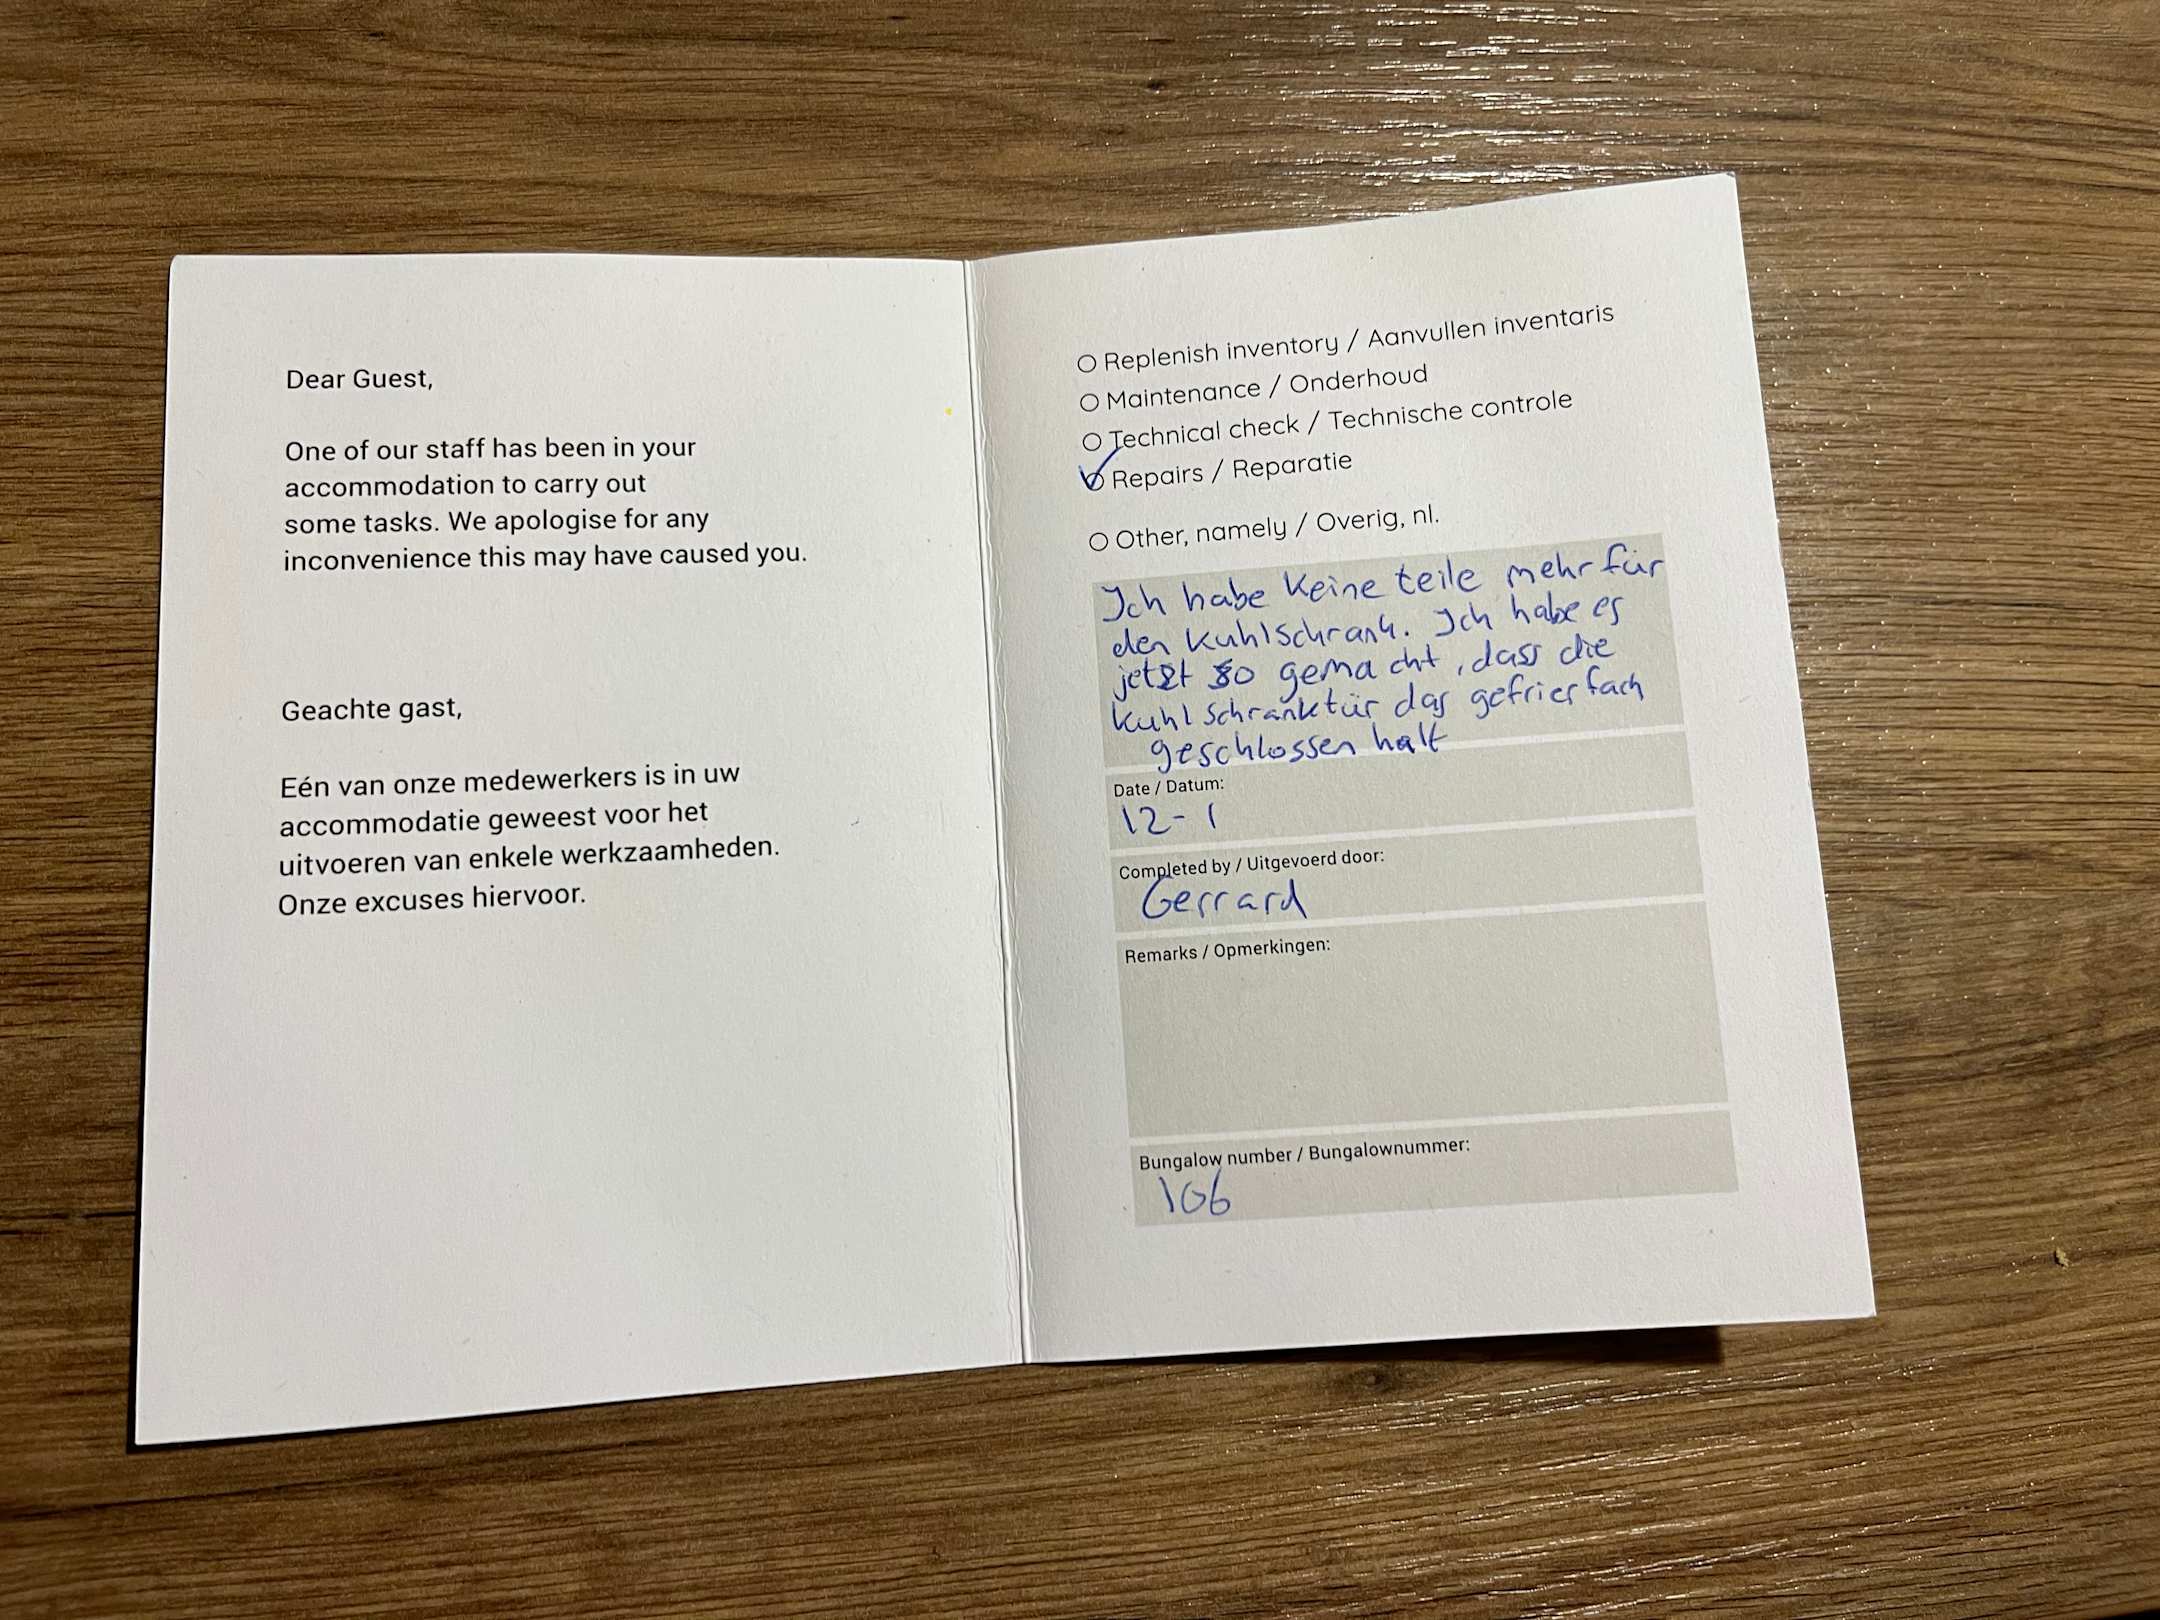 Dear Guest,
One of our staff has been in your
accommodation to carry out
some tasks. We apologise for any
inconvenience this may have caused you.
Geachte gast,
Eén van onze medewerkers is in uw
accommodatie geweest voor het
uitvoeren van enkele werkzaamheden.
Onze excuses hiervoor.
Replenish inventory / Aanvullen inventaris
Maintenance / Onderhoud
Technical check / Technische controle
Repairs / Reparatie
Other, namely / Overig, nl.
Ich habe Keine teile mehr für
den Kuhlschrank. Ich habe es
jetzt so gemacht, dass die
Kuhlschranktür das gefrierfach
geschlossen halt
Date / Datum:
12-1
Completed by / Uitgevoerd door:
Gerrard
Remarks / Opmerkingen:
Bungalow number / Bungalownummer:
106